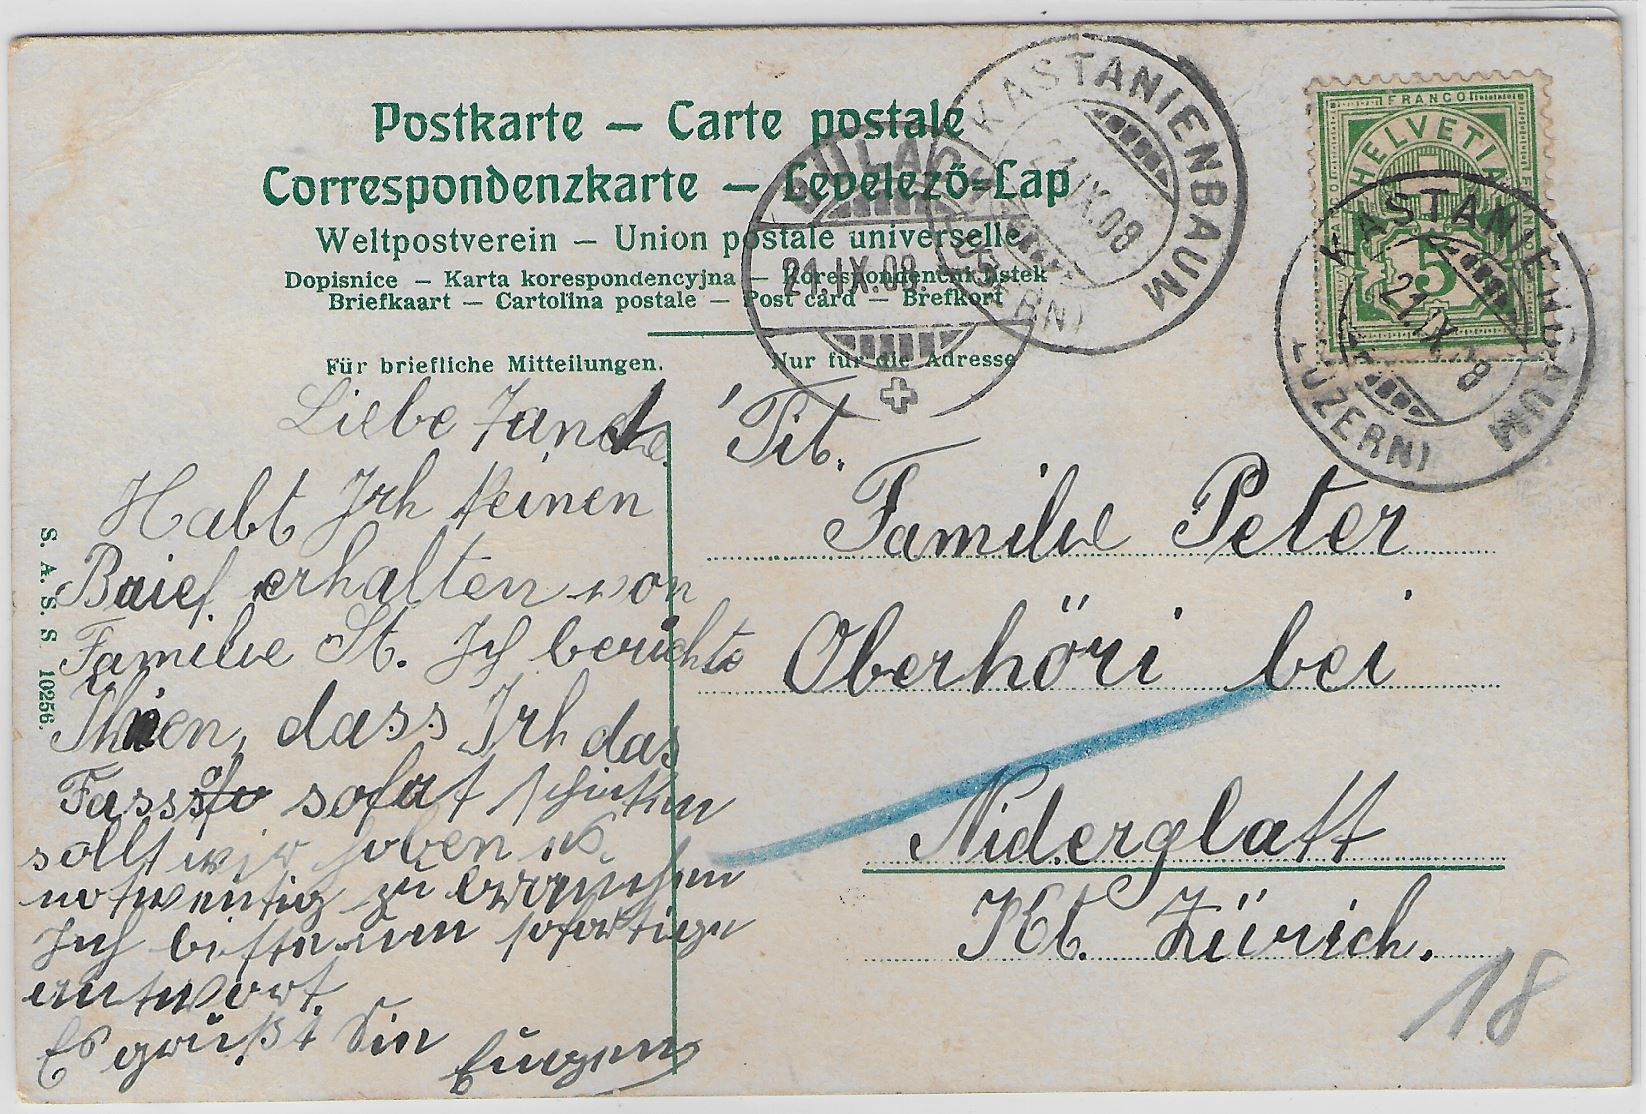 Postkarte – Carte postale
Correspondenzkarte – Levelező-Lap
Weltpostverein – Union postale universelle
Dopisnice – Karta korespondencyjna – Korespondenční listek
Briefkaart – Cartolina postale – Post card – Brefkort
Für briefliche Mitteilungen.
Nur für die Adresse
KASTANIENBAUM
(LUZERN)
IX.08
BÜLACH
21.IX.08.
FRANCO
HELVETIA
5
KASTANIENBAUM
21.IX. 8
(LUZERN)
S. A. S. S. 10256.
Liebe Tande.
Habt Irh keinen
Brief erhalten von
Familie St. Ich berichte
Ihnen, dass Irh das
Fass sofort schicken
sollt wir haben es
notwentig zu brauchen
Ich bitte um sofortige
antwort.
Es grüßt Sie
Eugen
Tit.
Familie Peter
Oberhöri bei
Niderglatt
Kt. Zürich.
18